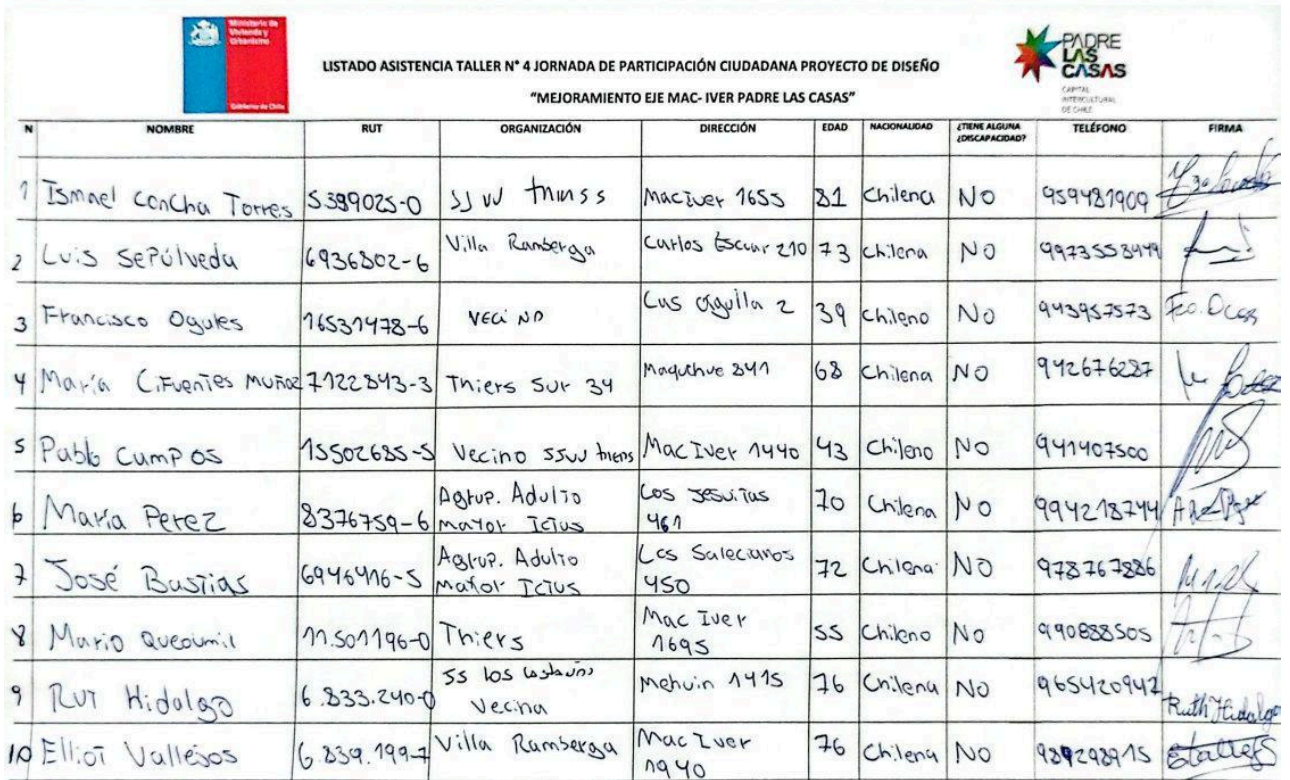 Ministerio de
Vivienda y
Urbanismo
Gobierno de Chile
PADRE
LAS
CASAS
CAPITAL
INTERCULTURAL
DE CHILE
LISTADO ASISTENCIA TALLER N° 4 JORNADA DE PARTICIPACIÓN CIUDADANA PROYECTO DE DISEÑO
"MEJORAMIENTO EJE MAC- IVER PADRE LAS CASAS"
N NOMBRE RUT ORGANIZACIÓN DIRECCIÓN EDAD NACIONALIDAD ¿TIENE ALGUNA ¿DISCAPACIDAD? TELÉFONO FIRMA
1 Ismael Concha Torres 5389025-0 JJ VV Mac Iver 1655 81 Chilena NO 959481909
2 Luis Sepúlveda 6936802-6 Villa Ramberga Carlos 210 73 Chilena NO
3 Francisco 16531478-6 VECINO 2 39 Chileno No 943957573
4 María Cifuentes Muñoz 7122843-3 Thiers Sur 34 841 68 Chilena NO 942676287
5 Pablo Campos 15502685-5 Vecino Mac Iver 1440 43 Chileno NO 941407500
6 María Perez 8376759-6 Agrup. Adulto mayor Ictus Los Jesuitas 461 70 Chilena NO 994218744
7 José Bustias 6946416-5 Agrup. Adulto mayor Ictus Los Salecianos 450 72 Chilena NO 978767886
8 Mario Queoumil 11.501196-0 Thiers Mac Iver 1695 55 Chileno No 990888505
9 Rut Hidalgo 6.833.240-0 Los Vecina Mehuin 1415 76 Chilena NO 965420942 Ruth Hidalgo
10 Elliot Vallejos 6.839.199-7 Villa Ramberga Mac Iver 1940 76 Chilena NO 989298915